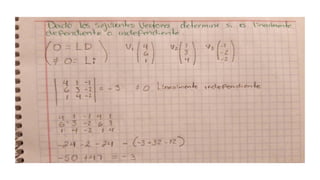 Dado los siguientes Vectores determine si es linealmente
dependiente o independiente
0 = LD V₁ 4 V₂ 1 V₃ -1
6 3 -2
1 4 -2
≠ 0 = Li
4 1 -1
6 3 -2 = -3 ≠ 0 Linealmente independiente
1 4 -2
4 1 -1 4 1
6 3 -2 6 3
1 4 -2 1 4
-24 -2 -24 - (-3 -32 -12)
-50 + 47 = -3